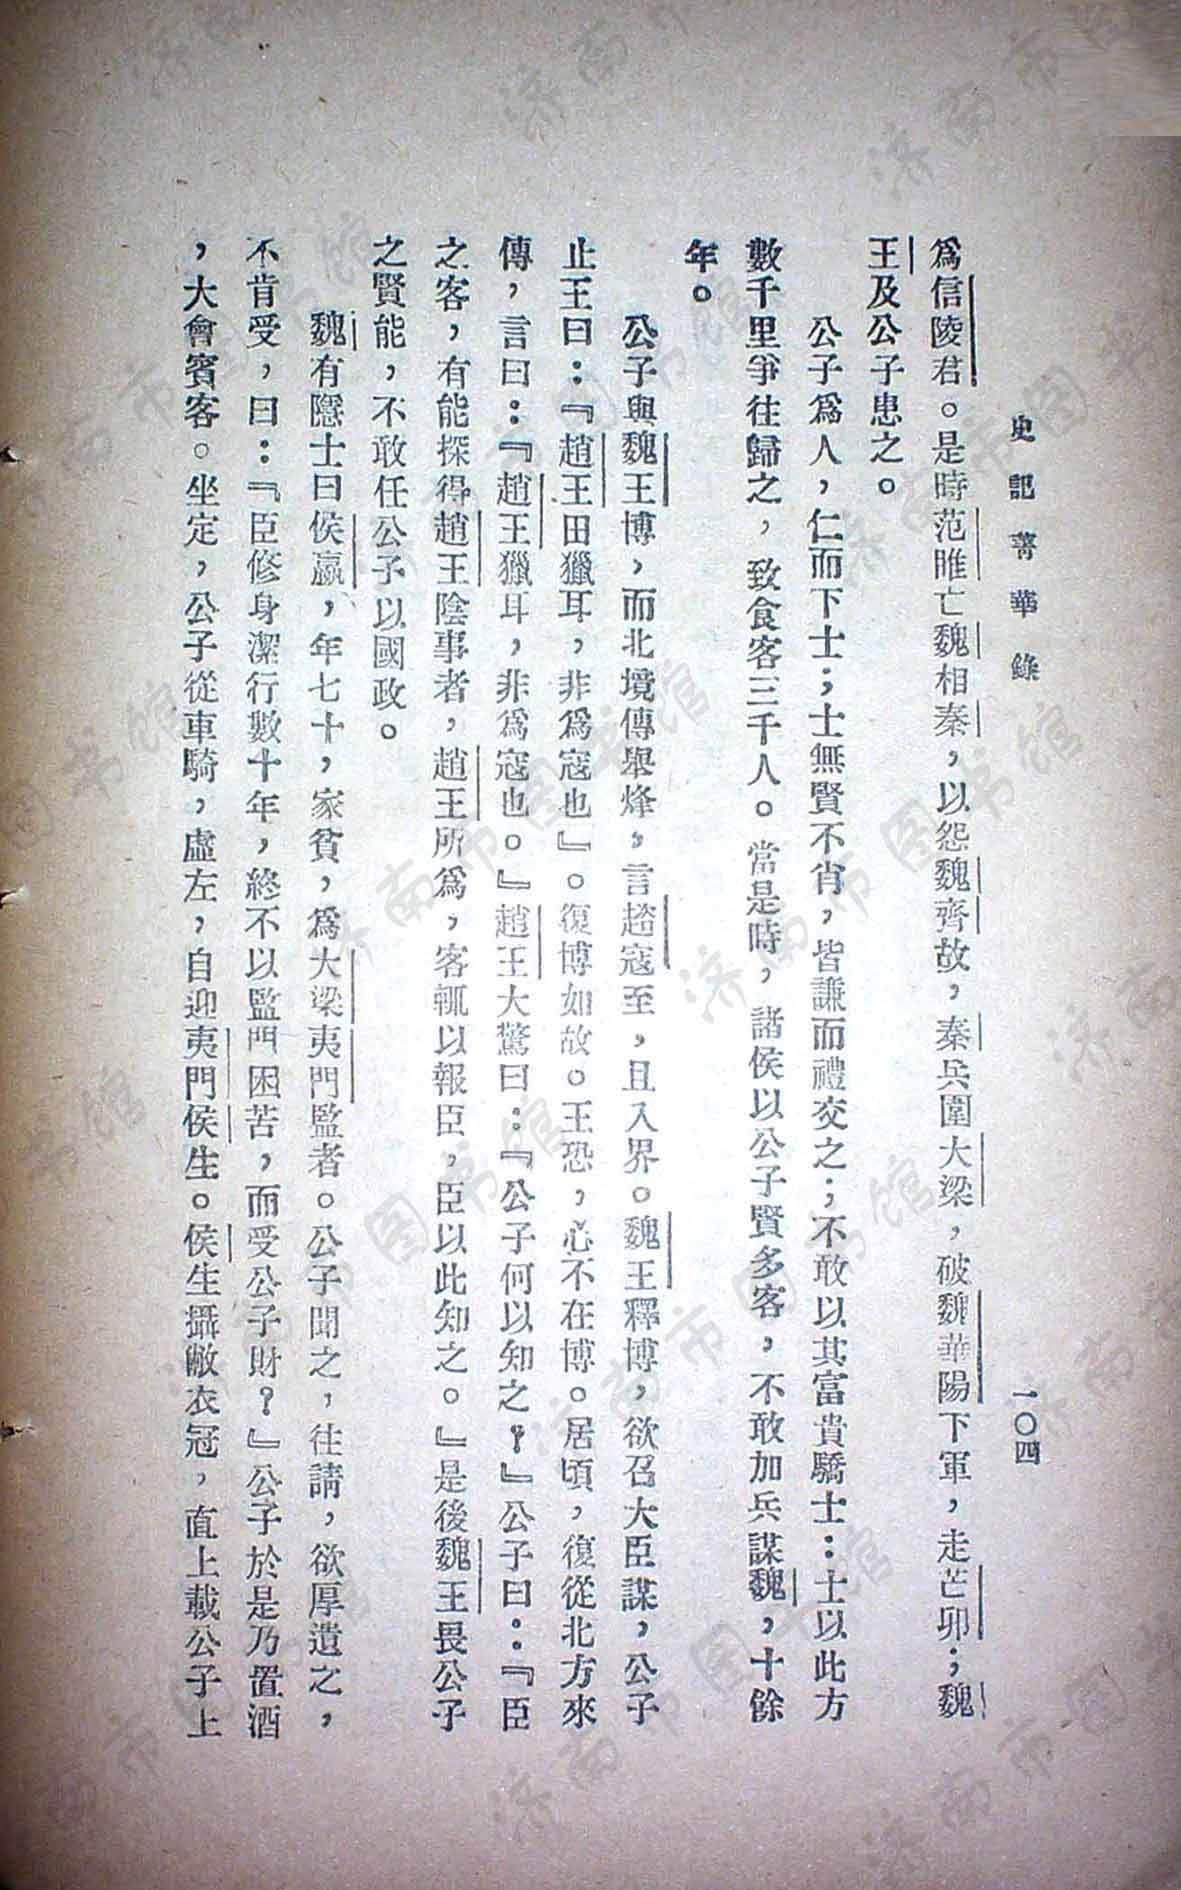 史記菁華錄
一〇四
爲信陵君。是時范睢亡魏相秦，以怨魏齊故，秦兵圍大梁，破魏華陽下軍，走芒卯；魏
王及公子患之。
公子爲人，仁而下士；士無賢不肖，皆謙而禮交之；不敢以其富貴驕士：士以此方
數千里爭往歸之，致食客三千人。當是時，諸侯以公子賢多客，不敢加兵謀魏，十餘
年。
公子與魏王博，而北境傳舉烽，言趙寇至，且入界。魏王釋博，欲召大臣謀，公子
止王曰：『趙王田獵耳，非爲寇也』。復博如故。王恐，心不在博。居頃，復從北方來
傳，言曰：『趙王獵耳，非爲寇也。』趙王大驚曰：『公子何以知之？』公子曰：『臣
之客，有能探得趙王陰事者，趙王所爲，客輒以報臣，臣以此知之。』是後魏王畏公子
之賢能，不敢任公子以國政。
魏有隱士曰侯嬴，年七十，家貧，爲大梁夷門監者。公子聞之，往請，欲厚遺之，
不肯受，曰：『臣修身潔行數十年，終不以監門困苦，而受公子財？』公子於是乃置酒
，大會賓客。坐定，公子從車騎，虛左，自迎夷門侯生。侯生攝敝衣冠，直上載公子上
济南市图书馆